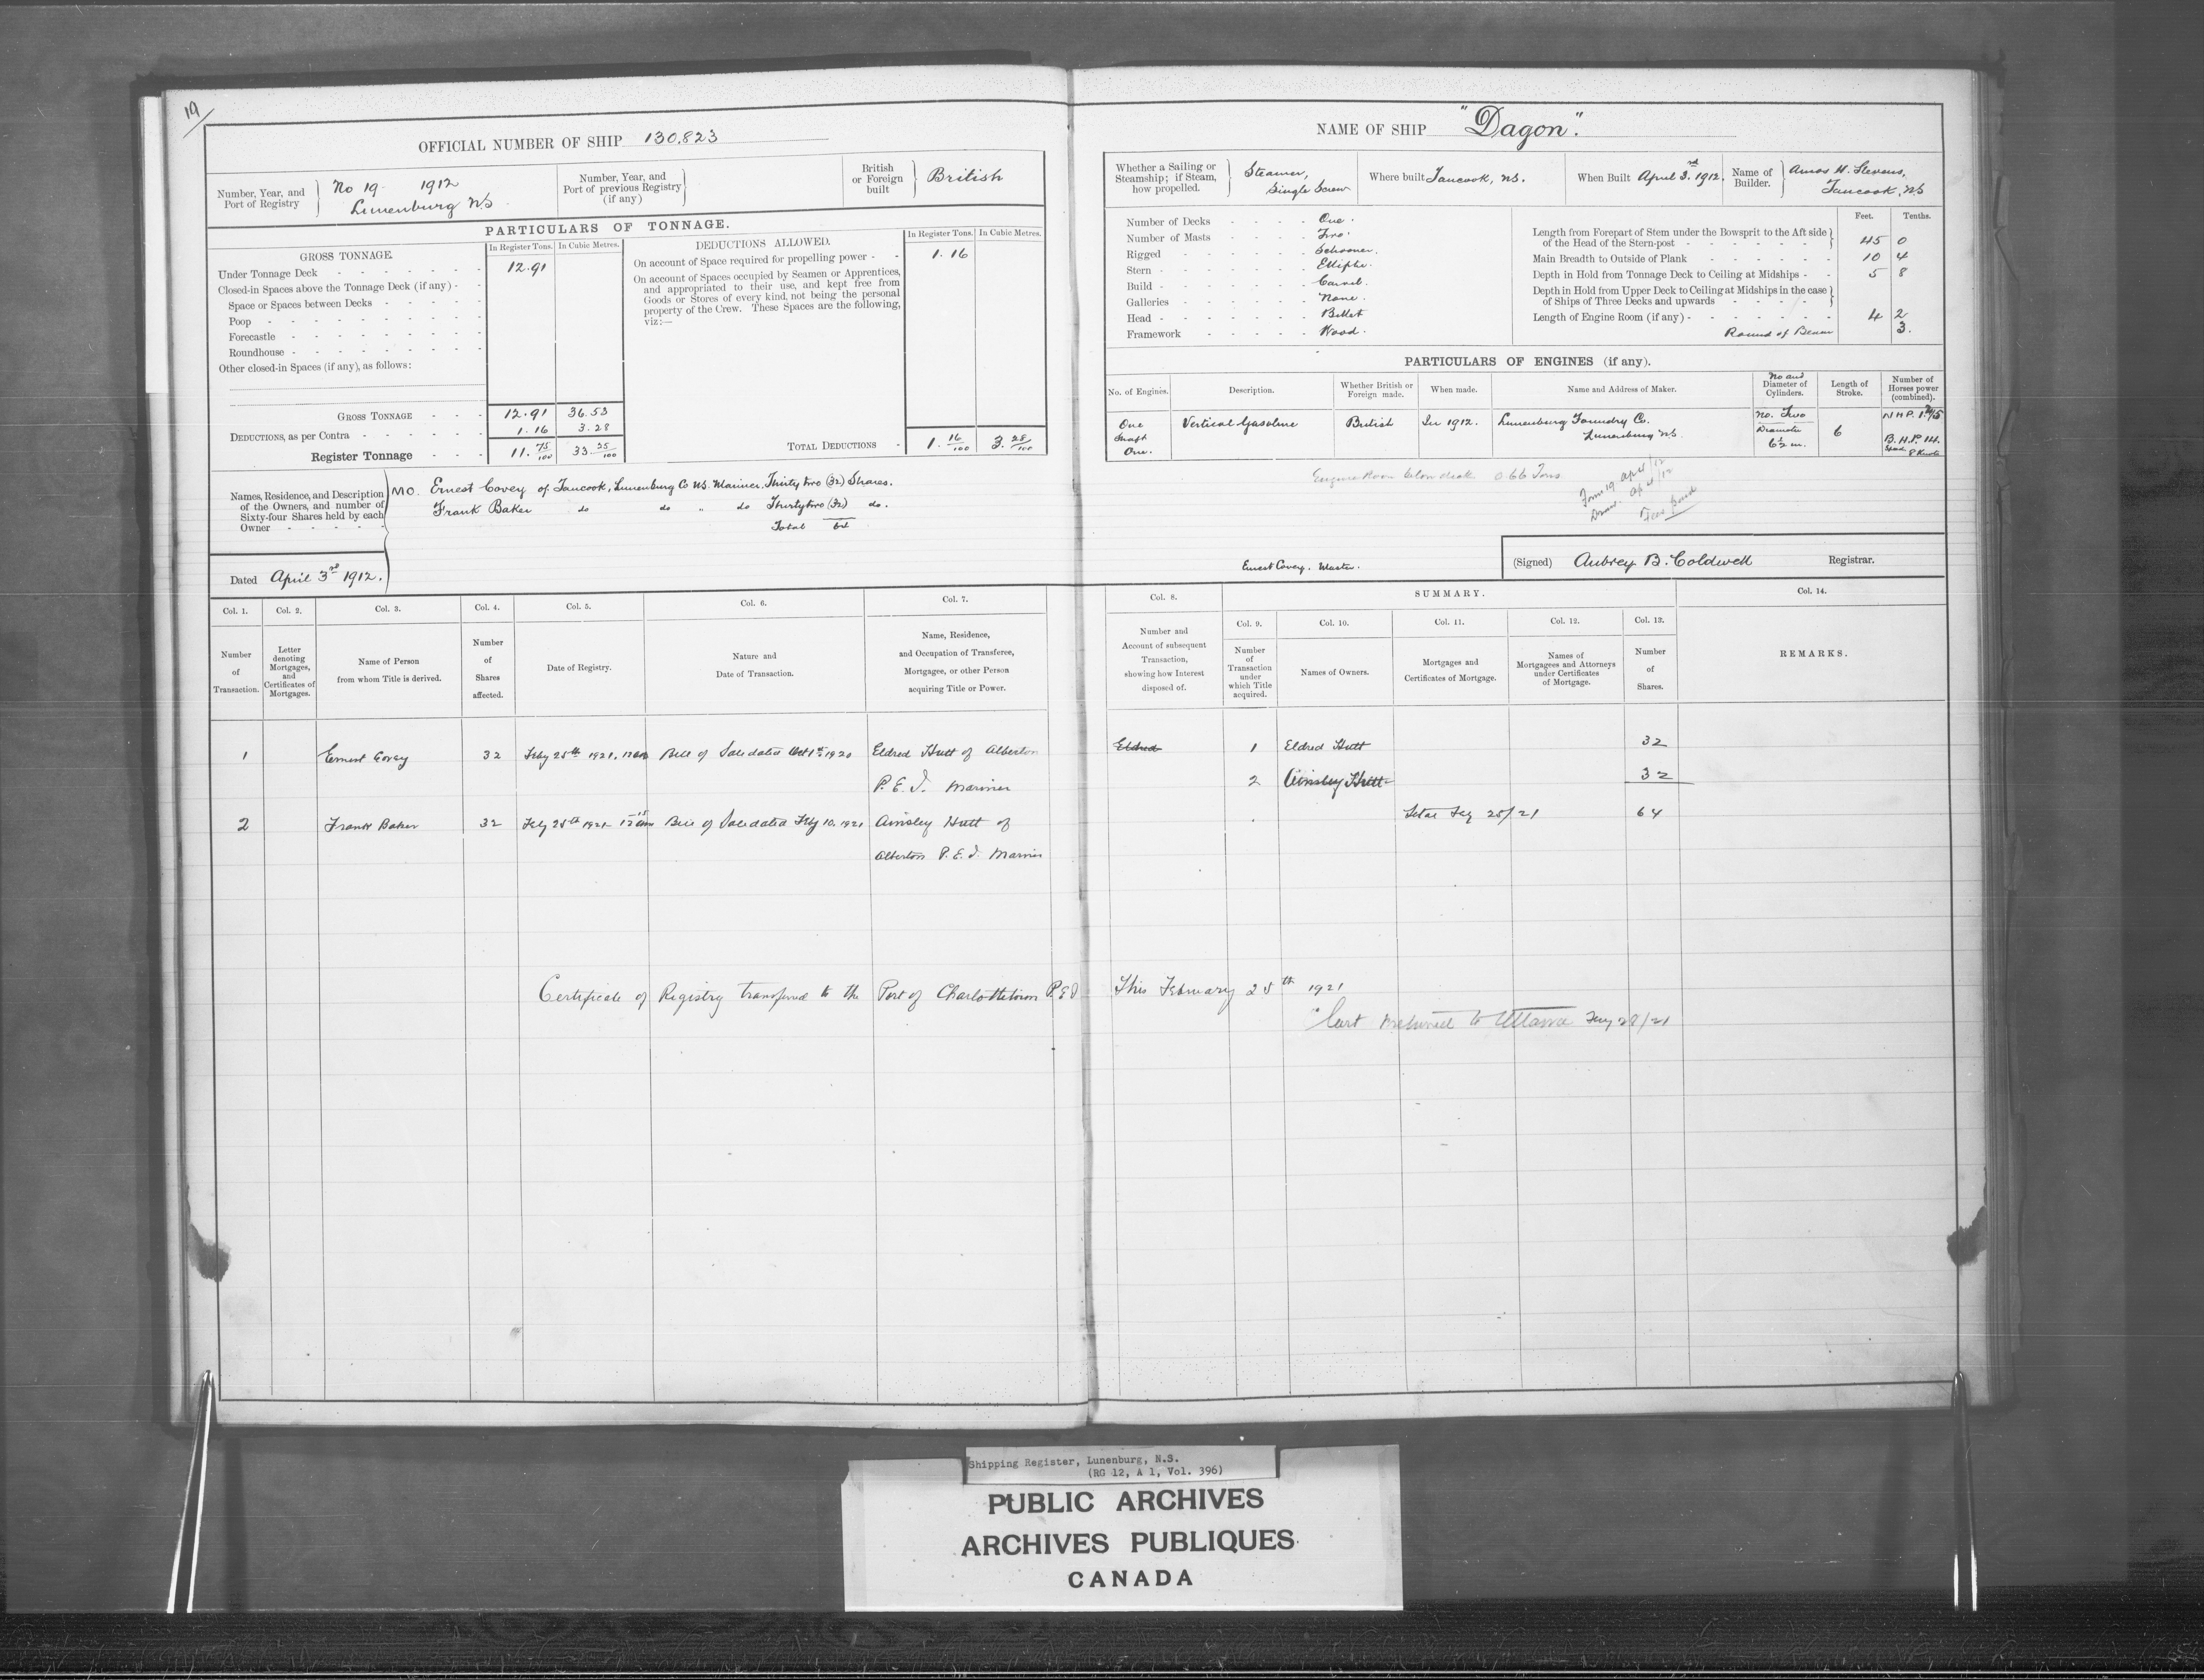 19
OFFICIAL NUMBER OF SHIP 130,823
Number, Year, and Port of Registry
No 19 1912
Lunenburg NS
Number, Year, and Port of previous Registry (if any)
British or Foreign built
British
PARTICULARS OF TONNAGE.
GROSS TONNAGE.
In Register Tons. In Cubic Metres.
Under Tonnage Deck 12.91
Closed-in Spaces above the Tonnage Deck (if any)
Space or Spaces between Decks
Poop
Forecastle
Roundhouse
Other closed-in Spaces (if any), as follows:
GROSS TONNAGE 12.91 36.53
DEDUCTIONS, as per Contra 1.16 3.28
Register Tonnage 11. 75/100 33. 25/100
DEDUCTIONS ALLOWED.
In Register Tons. In Cubic Metres.
On account of Space required for propelling power 1.16
On account of Spaces occupied by Seamen or Apprentices,
and appropriated to their use, and kept free from
Goods or Stores of every kind, not being the personal
property of the Crew. These Spaces are the following,
viz:—
TOTAL DEDUCTIONS 1. 16/100 3. 28/100
Names, Residence, and Description
of the Owners, and number of
Sixty-four Shares held by each
Owner
MO. Ernest Covey of Tancook, Lunenburg Co NS. Mariner, Thirty two (32) Shares.
Frank Baker do do " do Thirtytwo (32) do.
Total 64
Dated April 3rd 1912.
NAME OF SHIP "Dagon".
Whether a Sailing or Steamship; if Steam, how propelled.
Steamer,
Single Screw
Where built Tancook, NS.
When Built April 3rd 1912.
Name of Builder.
Amos H. Stevens,
Tancook, NS
Number of Decks One.
Number of Masts Two.
Rigged Schooner.
Stern Elliptic.
Build Carvel.
Galleries None.
Head Billet
Framework Wood.
Feet. Tenths.
Length from Forepart of Stem under the Bowsprit to the Aft side of the Head of the Stern-post 45 0
Main Breadth to Outside of Plank 10 4
Depth in Hold from Tonnage Deck to Ceiling at Midships 5 8
Depth in Hold from Upper Deck to Ceiling at Midships in the case of Ships of Three Decks and upwards
Length of Engine Room (if any) 4 2
Round of Beam 3.
PARTICULARS OF ENGINES (if any).
No. of Engines. Description. Whether British or Foreign made. When made. Name and Address of Maker. No and Diameter of Cylinders. Length of Stroke. Number of Horses power (combined).
One Shaft One.
Vertical Gasoline
British
In 1912.
Lunenburg Foundry Co.
Lunenburg NS.
No. Two
Diameter
6½ in.
6
B.H.P 14.
Engine Room below deck 0 66 Tons
Ernest Covey. Master.
(Signed) Aubrey B. Coldwell Registrar.
Col. 1. Col. 2. Col. 3. Col. 4. Col. 5. Col. 6. Col. 7.
Number of Transaction.
Letter denoting Mortgages, and Certificates of Mortgages.
Name of Person from whom Title is derived.
Number of Shares affected.
Date of Registry.
Nature and Date of Transaction.
Name, Residence, and Occupation of Transferee, Mortgagee, or other Person acquiring Title or Power.
Col. 8. SUMMARY. Col. 14.
Col. 9. Col. 10. Col. 11. Col. 12. Col. 13.
Number and Account of subsequent Transaction, showing how Interest disposed of.
Number of Transaction under which Title acquired.
Names of Owners.
Mortgages and Certificates of Mortgage.
Names of Mortgagees and Attorneys under Certificates of Mortgage.
Number of Shares.
REMARKS.
1 Ernest Covey 32 Feby 25th 1921. Bill of Sale dated Oct 1st 1920 Eldred Hutt of Alberton
P.E.I. Mariner
2 Frank Baker 32 Feby 25th 1921 Bill of Sale dated Feby 10, 1921 Ainsley Hutt of
Alberton P.E.I. Mariner
Eldred 1 Eldred Hutt 32
2 Ainsley Hutt 32
Total Feby 25/21 64
Certificate of Registry transferred to the Port of Charlottetown P.E.I This February 25th 1921
Cert returned to Ottawa Feby 28/21
Shipping Register, Lunenburg, N.S.
(RG 12, A 1, Vol. 396)
PUBLIC ARCHIVES
ARCHIVES PUBLIQUES
CANADA